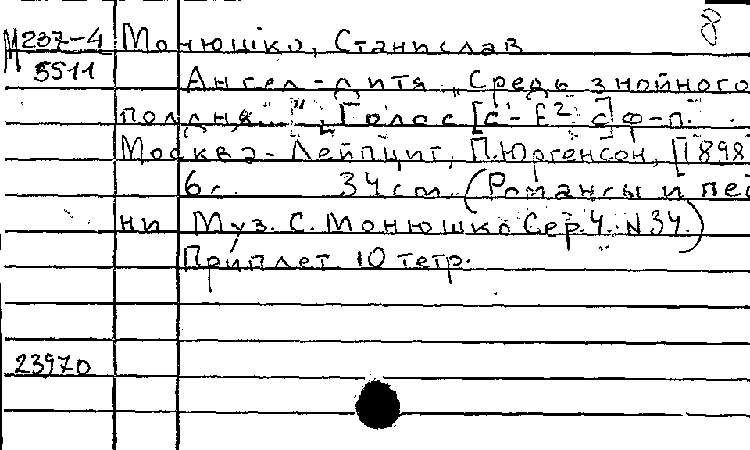 8
М 237-4 Монюшко, Станислав
3511
Ангел-дитя „Средь знойного
полдня..." Голос [c'-f² с] ф-п.
Москва-Лейпциг, П.Юргенсон, [1898
6с. 34 см (Романсы и пе
ни Муз. С. Монюшко Сер. 4. N 34.)
Приплет 10 тетр.
23970